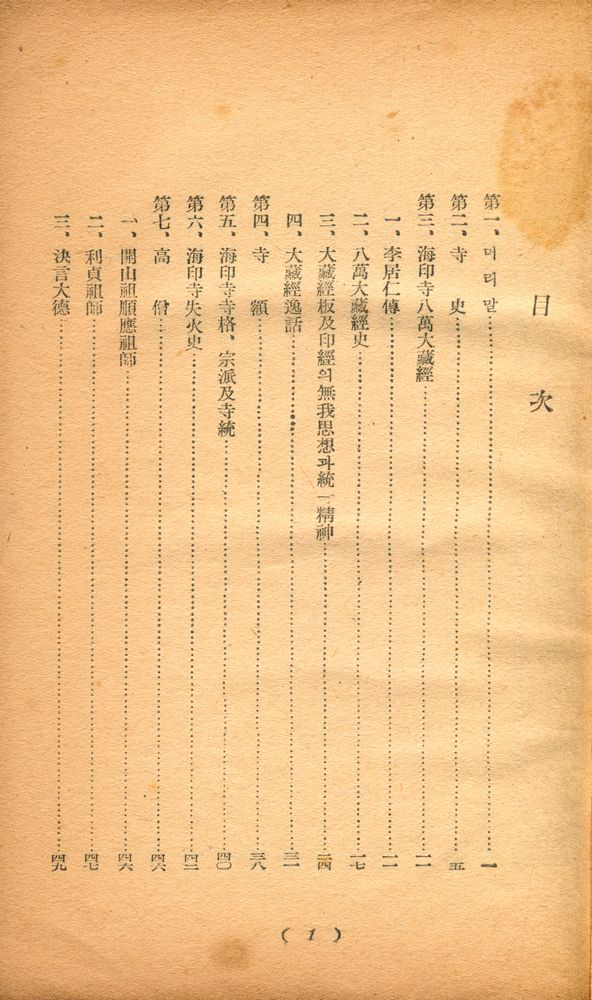 目次
第一、머리말……一
第二、寺史……五
第三、海印寺八萬大藏經……一一
一、李居仁傳……一一
二、八萬大藏經史……一七
三、大藏經板及印經의無我思想과統一精神……二四
四、大藏經逸話……三一
第四、寺額……三八
第五、海印寺寺格、宗派及寺統……四〇
第六、海印寺失火史……四二
第七、高僧……四六
一、開山祖順應祖師……四六
二、利貞祖師……四七
三、決言大德……四九
(1)